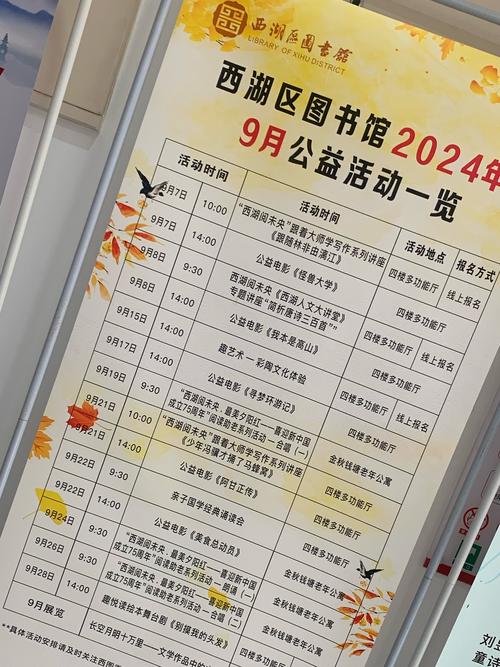 西湖区图书馆
LIBRARY OF XIHU DISTRICT
西湖区图书馆2024年
9月公益活动一览
活动时间 活动时间 活动地点 报名方式
9月7日 10:00 “西湖阅未央”跟着大师学写作系列讲座
《跟随林非由漓江》 四楼多功能厅 线上报名
9月7日 14:00 公益电影《怪兽大学》 四楼多功能厅
9月8日 9:30 西湖阅未央《西湖人文大讲堂》
专题讲座“简析唐诗三百首”” 四楼多功能厅 线上报名
9月8日 14:00 公益电影《我本是高山》 四楼多功能厅
9月15日 9:30 趣艺术 – 彩陶文化体验 四楼多功能厅 线上报名
9月17日 14:00 公益电影《寻梦环游记》 四楼多功能厅
9月19日 9:30 “西湖阅未央．最美夕阳红——喜迎新中国
成立75周年”阅读助老系列活动 – 合唱（一） 金秋钱塘老年公寓
9月21日 10:00 “西湖阅未央”跟着大师学写作系列讲座
《少年冯骥才捅了马蜂窝》 四楼多功能厅
9月21日 14:00 公益电影《阿甘正传》 四楼多功能厅
9月22日 9:30 亲子国学经典诵读会 四楼多功能厅
9月22日 14:00 公益电影《美食总动员》 四楼多功能厅
9月24日 9:30 “西湖阅未央．最美夕阳红——喜迎新中国
成立75周年”阅读助老系列活动 – 朗诵（一） 金秋钱塘老年公寓
9月26日 9:30 “西湖阅未央．最美夕阳红——喜迎新中国
成立75周年”阅读助老系列活动 – 合唱（二） 金秋钱塘老年公寓
9月28日 14:00 趣悦读绘本舞台剧《别摸我的头发》 四楼多功能厅
9月展览 长空月明十万里——文学作品中的
**具体活动安排请及时关注西图